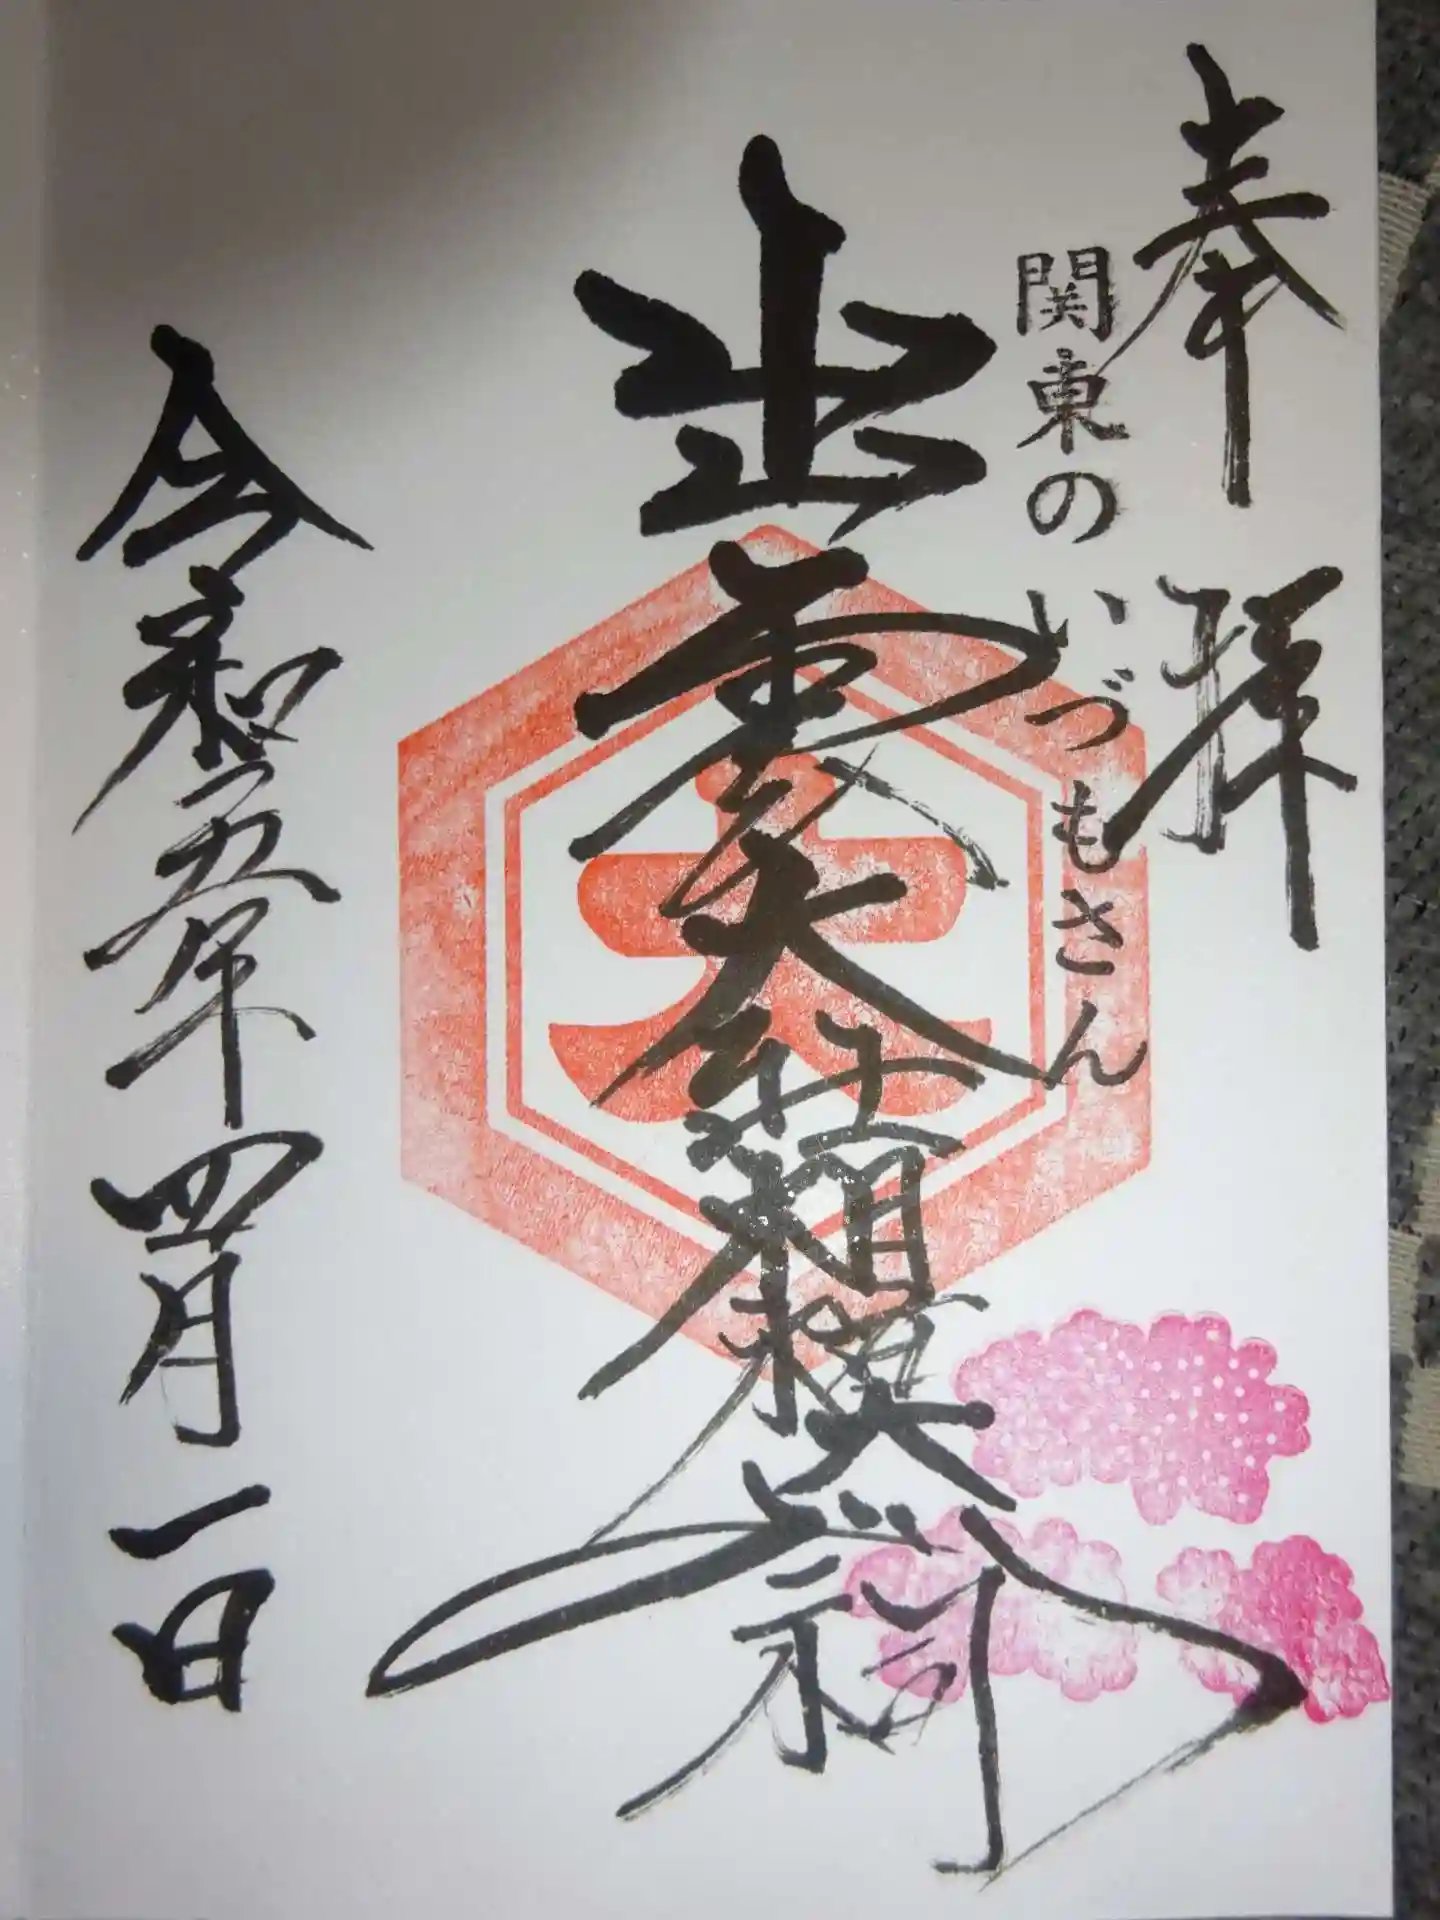 奉拝
関東のいづもさん
出雲大社相模分祠
大
令和五年四月一日